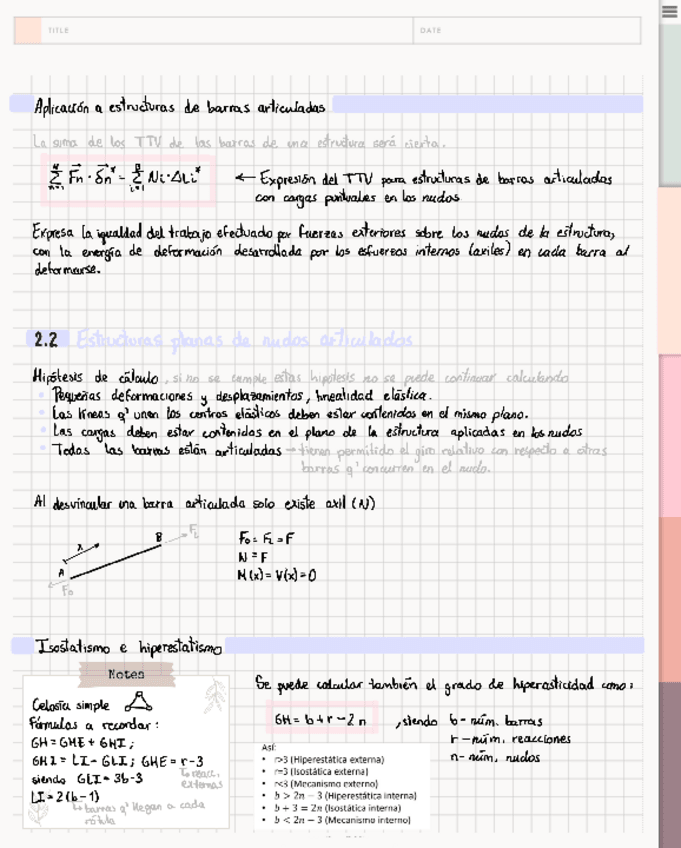 TITLE
DATE
Aplicación a estructuras de barras articuladas
La suma de los TTV de las barras de una estructura será cierta.
∑ₙ₌₁ᴺ F⃗n · δ⃗n* = ∑ᵢ₌₁ᴮ Ni · ΔLi*
← Expresión del TTV para estructuras de barras articuladas
con cargas puntuales en los nudos
Expresa la igualdad del trabajo efectuado por fuerzas exteriores sobre los nudos de la estructura,
con la energía de deformación desarrollada por los esfuerzos internos (axiles) en cada barra al
deformarse.
2.2 Estructuras planas de nudos articulados
Hipótesis de cálculo, si no se cumple estas hipótesis no se puede continuar calculando
• Pequeñas deformaciones y desplazamientos, linealidad elástica.
• Las líneas q' unen los centros elásticos deben estar contenidos en el mismo plano.
• Las cargas deben estar contenidos en el plano de la estructura aplicadas en los nudos
• Todas las barras están articuladas → tienen permitido el giro relativo con respecto a otras
barras q' concurren en el nudo.
Al desvincular una barra articulada solo existe axil (N)
x
A
B
F₀
F_L
F₀ = F_L = F
N = F
M(x) = V(x) = 0
Isostatismo e hiperestatismo
Notes
Celosía simple
Fórmulas a recordar:
GH = GHE + GHI;
GHI = LI - GLI; GHE = r - 3
siendo GLI = 3b - 3
↳ reacc. externas
LI = 2(b - 1)
↳ barras q' llegan a cada
rótula
Se puede calcular también el grado de hiperasticidad como:
GH = b + r - 2n
, siendo b - núm. barras
r - núm. reacciones
n - núm. nudos
Así:
• r>3 (Hiperestática externa)
• r=3 (Isostática externa)
• r<3 (Mecanismo externo)
• b > 2n − 3 (Hiperestática interna)
• b + 3 = 2n (Isostática interna)
• b < 2n − 3 (Mecanismo interno)